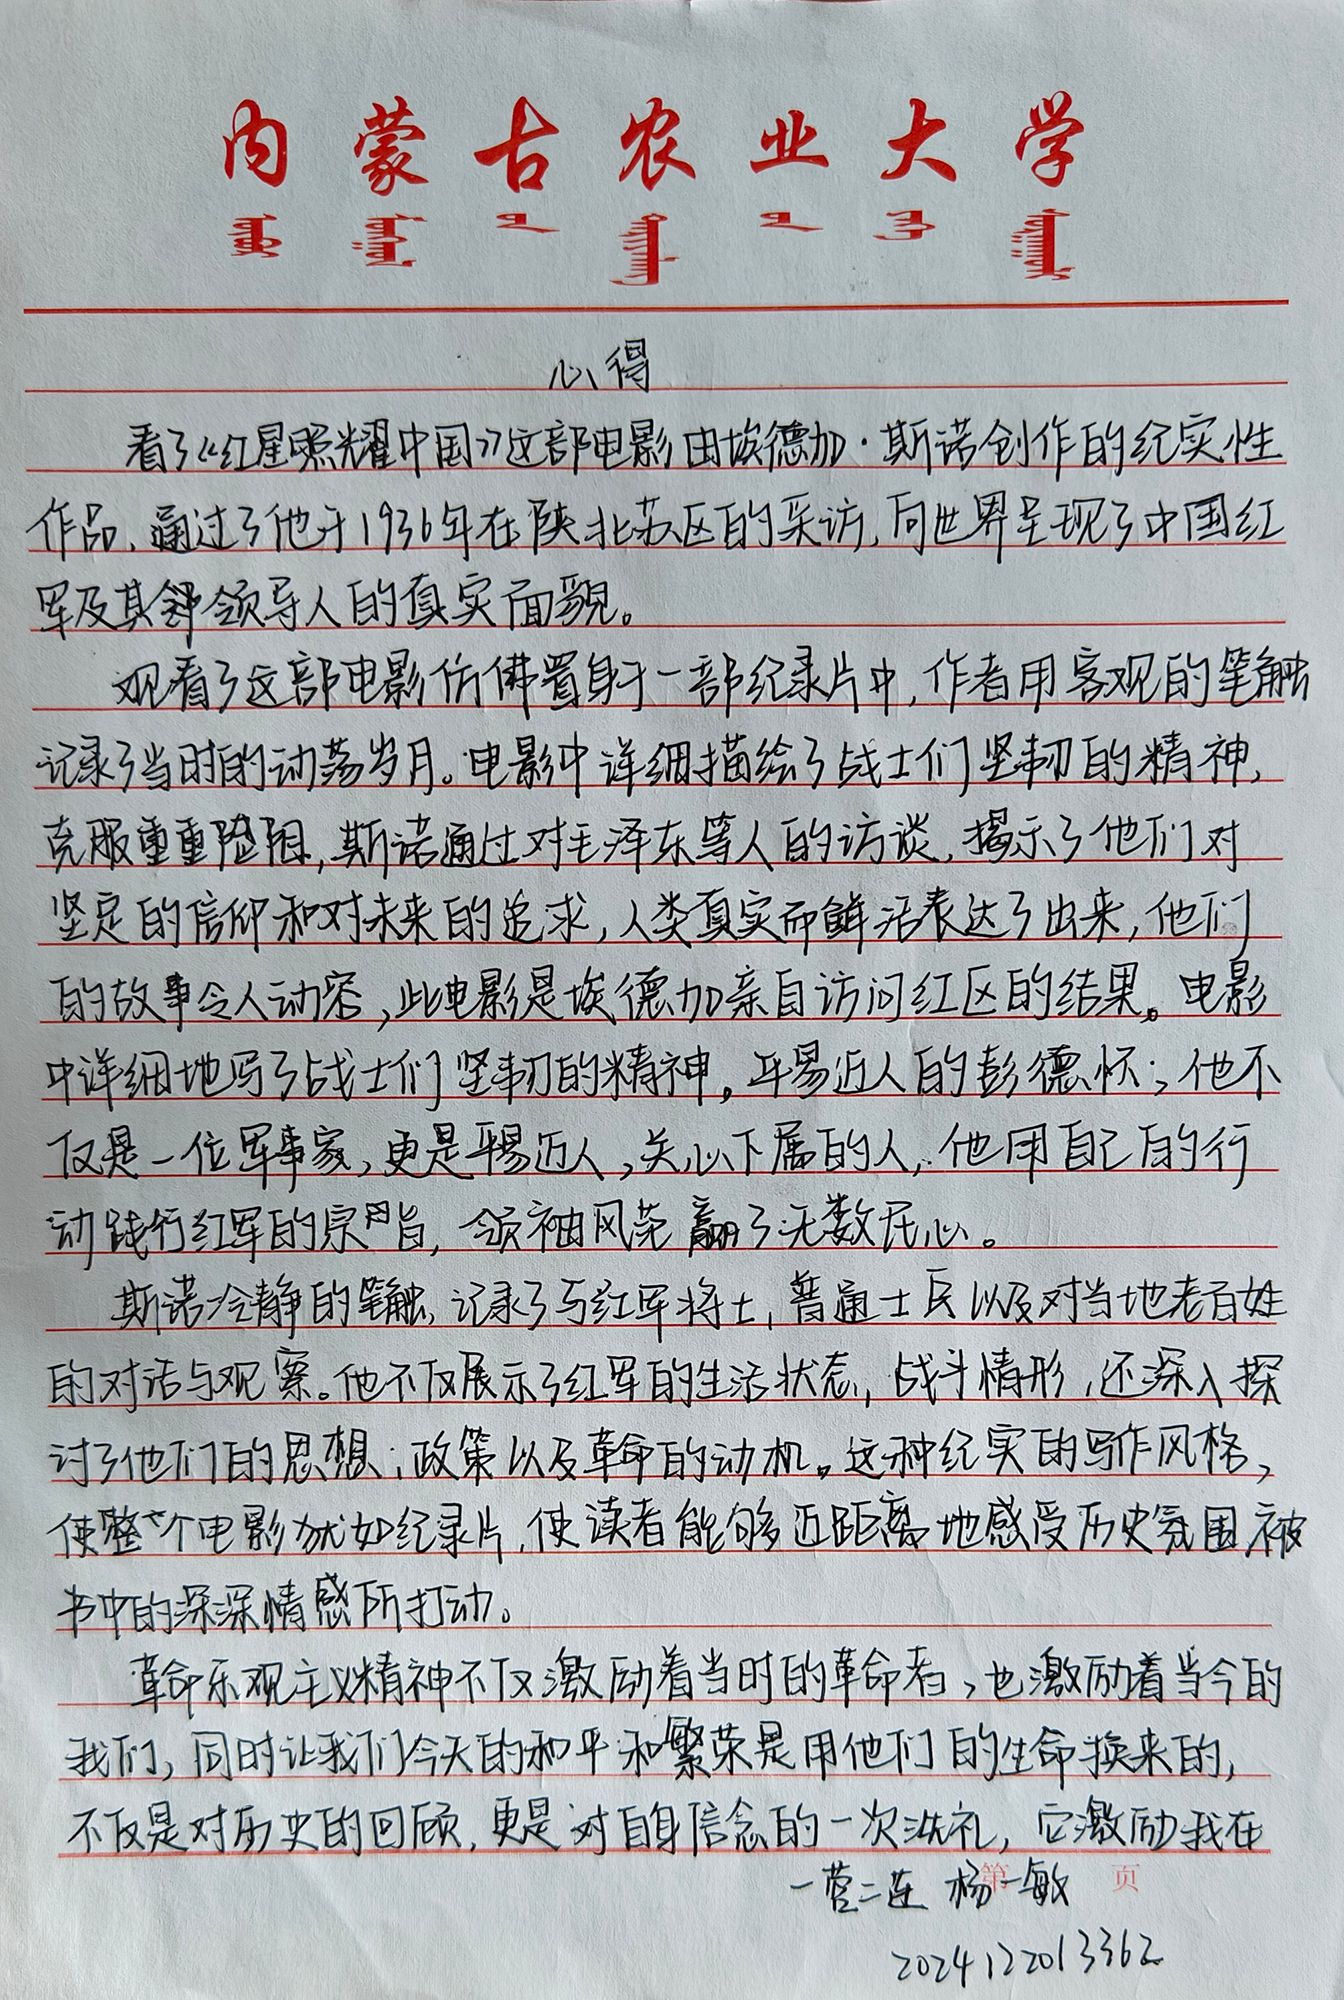 内蒙古农业大学
心得
看了《红星照耀中国》这部电影由埃德加·斯诺创作的纪实性
作品,通过了他于1936年在陕北苏区的采访,向世界呈现了中国红
军及其领导人的真实面貌。
观看了这部电影仿佛置身于一部纪录片中,作者用客观的笔触
记录了当时的动荡岁月。电影中详细描绘了战士们坚韧的精神,
克服重重险阻,斯诺通过对毛泽东等人的访谈,揭示了他们对
坚定的信仰和对未来的追求,人类真实而鲜活表达了出来,他们
的故事令人动容,此电影是埃德加亲自访问红区的结果。电影
中详细地写了战士们坚韧的精神。平易近人的彭德怀;他不
仅是一位军事家,更是平易近人,关心下属的人,他用自己的行
动践行红军的宗旨,领袖风范赢了无数民心。
斯诺冷静的笔触,记录了与红军将士,普通士兵以及对当地老百姓
的对话与观察。他不仅展示了红军的生活状态,战斗情形,还深入探
讨了他们的思想,政策以及革命的动机。这种纪实的写作风格,
使整个电影犹如纪录片,使读者能够近距离地感受历史氛围,被
书中的深深情感所打动。
革命乐观主义精神不仅激励着当时的革命者,也激励着当今的
我们,同时让我们今天的和平和繁荣是用他们的生命换来的,
不仅是对历史的回顾,更是对自身信念的一次洗礼,它激励我在
一营二连 杨一敏
第 页
2024122013362